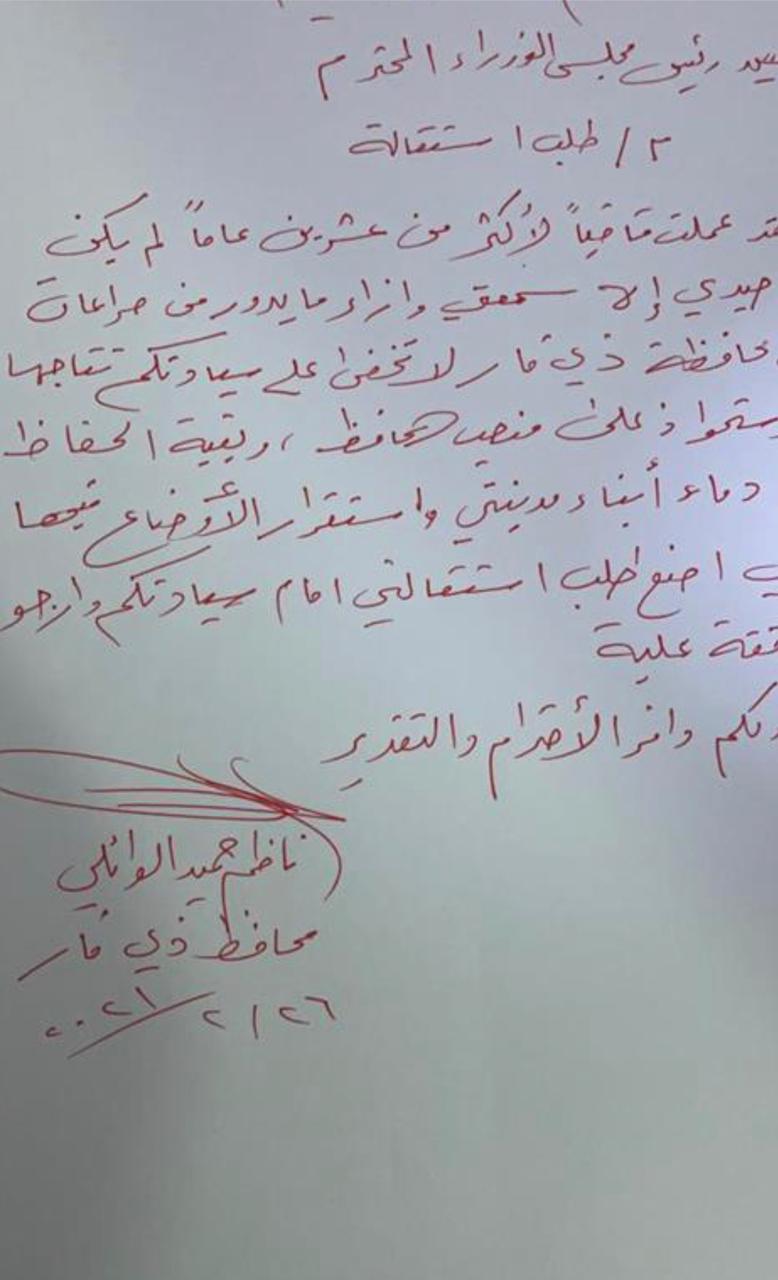 رئيس مجلس الوزراء المحترم
م / طلب استقالة
عملت قاضياً لأكثر من عشرين عاماً لم يكن
إلا سمعتي وازاء ما يدور من صراعات
ذي قار لا تخفى على سيادتكم نتاجها
على منصب محافظ ، وبغية الحفاظ
دماء أبناء مدينتي واستقرار الأوضاع فيها
اضع طلب استقالتي امام سيادتكم وارجو
علية
وافر الأحترام والتقدير
ناظم حميد الوائلي
محافظ ذي قار
٢٦ / ٢ / ٢٠٢١